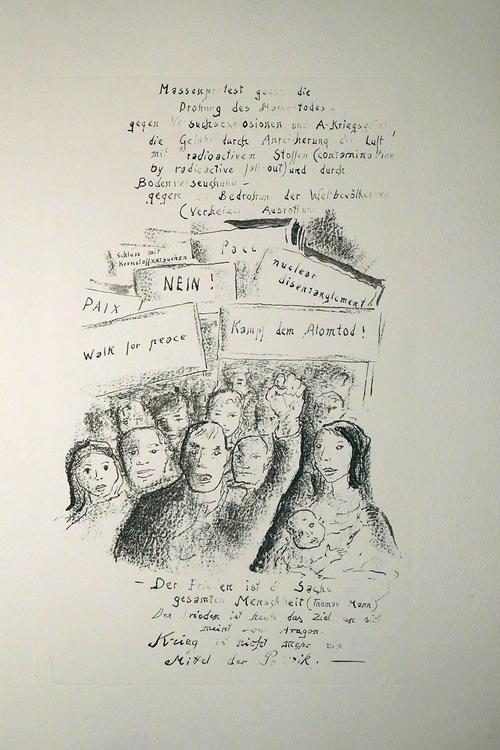 Massenprotest gegen die
Drohung des Massentodes -
gegen Versuchsexplosionen und A-Kriegs
die Gefahr durch Anreicherung der Luft
mit radioactiven Stoffen (contamination
by radioactive fall out) und durch
Bodenverseuchung -
gegen Bedrohung der Weltbevölkerung
( Ausrottung
Schluss mit
Kernstoffversuchen
Pace
nuclear
disentanglement
NEIN !
PAIX
Walk for peace
Kampf dem Atomtod !
- Der Frieden ist die Sache der
gesamten Menschheit (Thomas Mann)
Der Frieden ist heute das Ziel an sich
meint von Aragon.
Krieg ist nicht mehr ein
Mittel der Politik. —